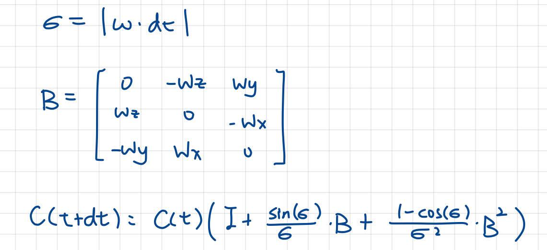 σ = |w·dt|
B = [ 0 -wz wy
wz 0 -wx
-wy wx 0 ]
C(t+dt) = C(t)( I + sin(σ)/σ ·B + 1-cos(σ)/σ² ·B² )